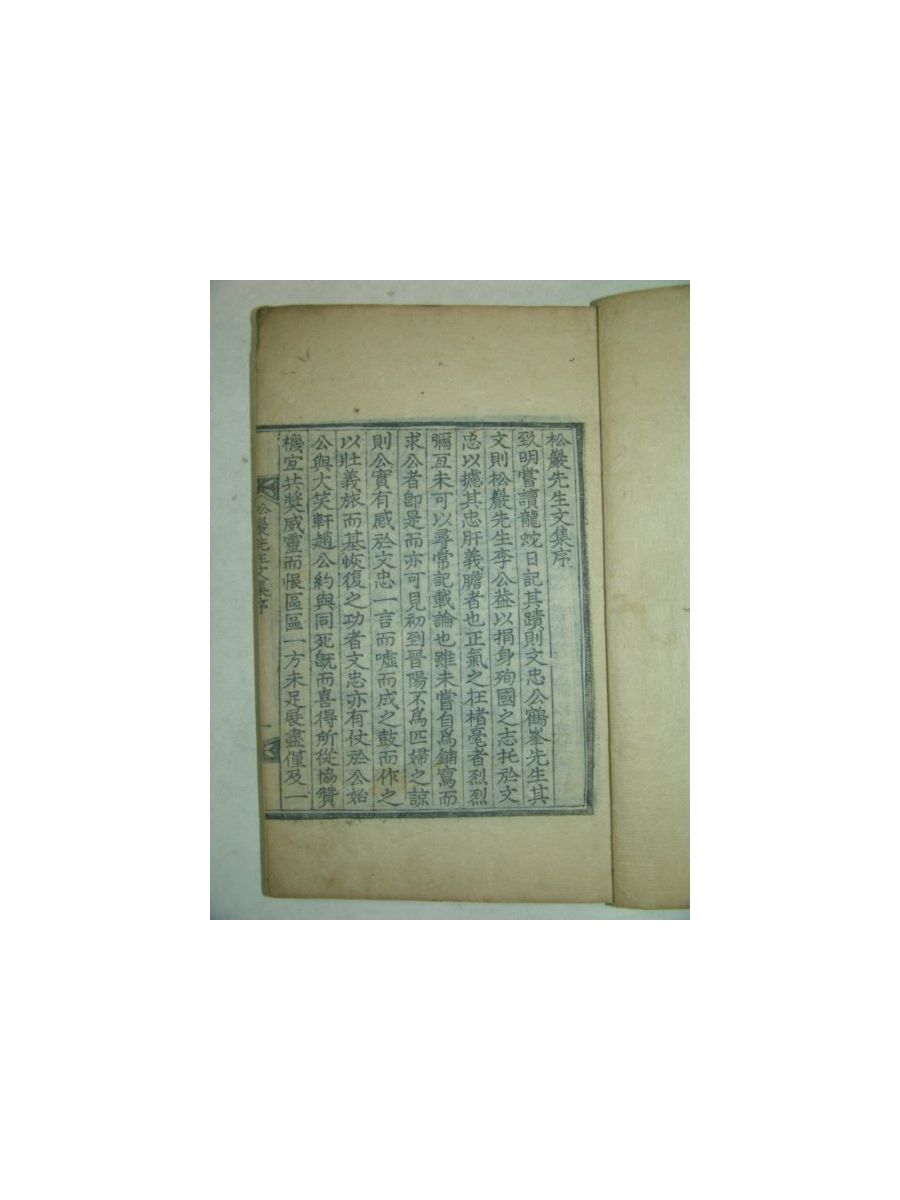 松巖先生文集序
致明嘗讀龍蛇日記其蹟則文忠公鶴峯先生其
文則松巖先生李公益以捐身殉國之志托於文
忠以攄其忠肝義膽者也正氣之在楮毫者烈烈
彌亘未可以尋常記載論也雖未嘗自爲鋪寫而
求公者卽是而亦可見初到晉陽不爲匹婦之諒
則公實有感於文忠一言而噓而成之鼓而作之
以壯義旅而基恢復之功者文忠亦有仗於公始
公與大笑軒趙公約與同死旣而喜得所從協贊
機宜共奬威靈而恨區區一方未足展盡僅及一
松巖先生文集序
一